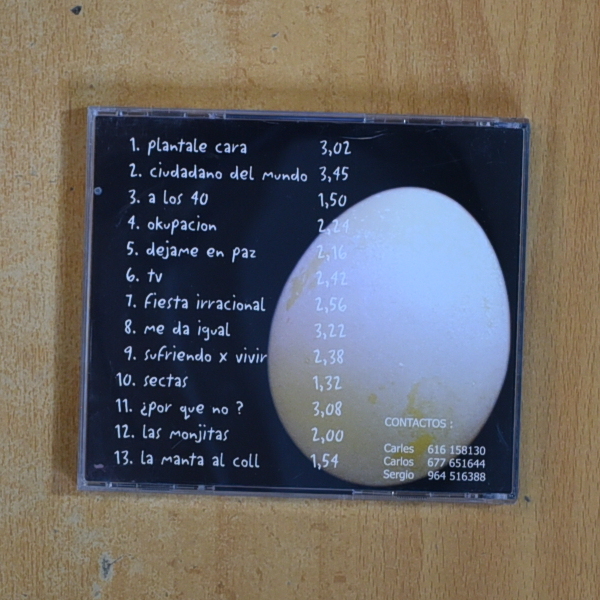 1. plantale cara 3,02
2. ciudadano del mundo 3,45
3. a los 40 1,50
4. okupacion 2,24
5. dejame en paz 2,16
6. tv 2,42
7. fiesta irracional 2,56
8. me da igual 3,22
9. sufriendo x vivir 2,38
10. sectas 1,32
11. ¿por que no ? 3,08
12. las monjitas 2,00
13. la manta al coll 1,54
CONTACTOS :
Carles 616 158130
Carlos 677 651644
Sergio 964 516388